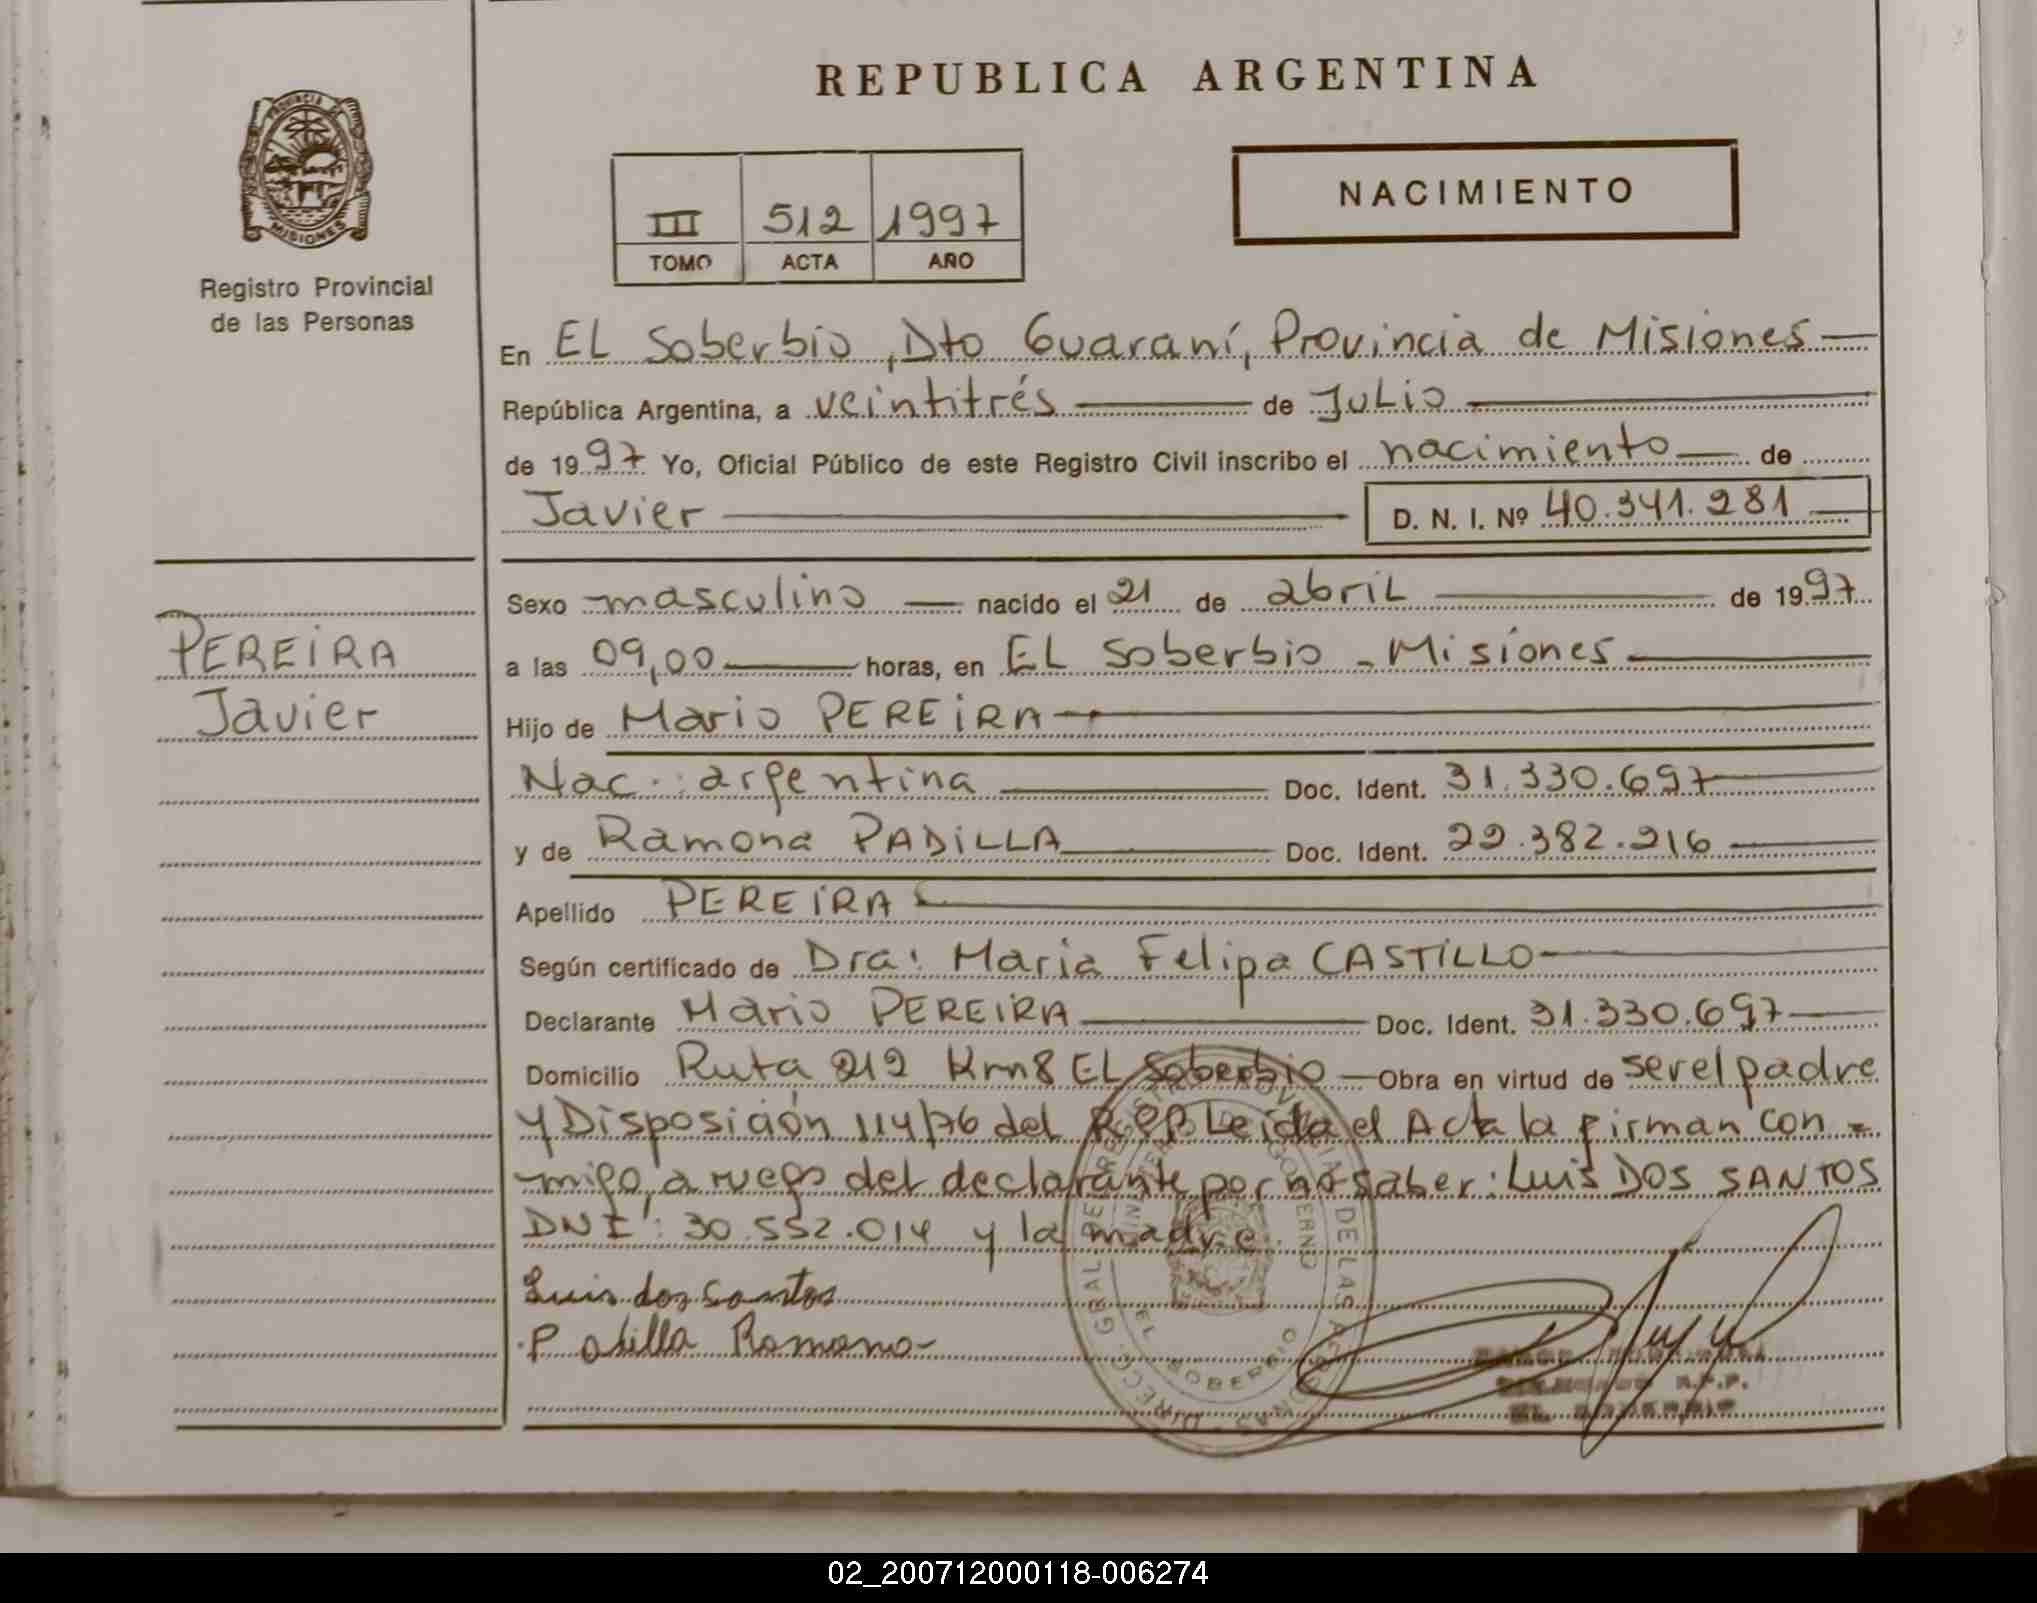 REPUBLICA ARGENTINA
PROVINCIA DE
MISIONES
Registro Provincial
de las Personas
III 512 1997
TOMO ACTA AÑO
NACIMIENTO
En EL Soberbio, Dto Guaraní, Provincia de Misiones
República Argentina, a veintitrés de JuLio
de 1997 Yo, Oficial Público de este Registro Civil inscribo el nacimiento de
Javier D. N. I. Nº 40.341.281
PEREIRA
Javier
Sexo masculino nacido el 21 de abriL de 1997
a las 09,00 horas, en EL Soberbio - Misiones
Hijo de Mario PEREIRA
Nac.: argentina Doc. Ident. 31.330.697
y de Ramona PADILLA Doc. Ident. 22.382.216
Apellido PEREIRA
Según certificado de Dra: Maria Felipa CASTILLO
Declarante Mario PEREIRA Doc. Ident. 31.330.697
Domicilio Ruta 212 Km8 EL Soberbio Obra en virtud de ser el padre
y Disposición 114/76 del RPP Leida el Acta la firman con=
migo, a ruego del declarante por no saber: Luis DOS SANTOS
DNI: 30.552.014 y la madre.
Luis dos Santos
Padilla Ramona
EL SOBERBIO
R.P.P.
EL SOBERBIO
02_200712000118-006274